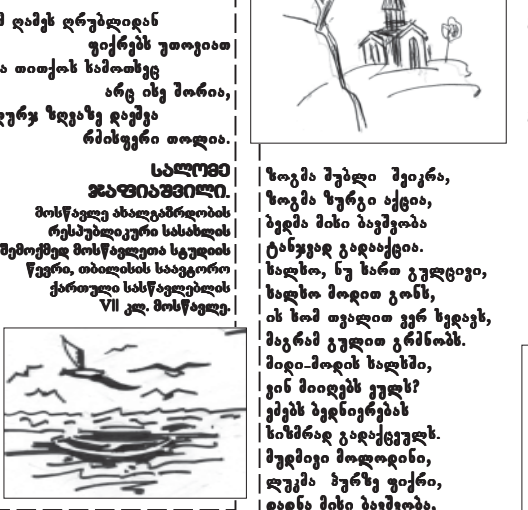 ღამეს ღრუბლიდან
ფიქრებს უთოვიათ
თითქოს სამოთხეც
არც ისე შორია,
ზღვაზე დაეშვა
რძისფერი თოლია.
სალომე
ჯაფიაშვილი.
მოსწავლე ახალგაზრდობის
რესპუბლიკური სასახლის
შემოქმედ მოსწავლეთა სტუდიის
წევრი, თბილისის საავტორო
ქართული სასწავლებლის
VII კლ. მოსწავლე.
ზოგმა შუბლი შეიკრა,
ზოგმა ზურგი აქცია,
ბედმა მისი ბავშვობა
ტანჯვად გადააქცია.
ხალხო, ნუ ხართ გულცივი,
ხალხო მოდით გონს,
ის ხომ თვალით ვერ ხედავს,
მაგრამ გულით გრძნობს.
მიდი-მოდის ხალხში,
ვინ მიიღებს ეულს?
ეძებს ბედნიერებას
სიზმრად გადაქცეულს.
მუდმივი მოლოდინი,
ლუკმა პურზე ფიქრი,
დადნა მისი ბავშვობა,